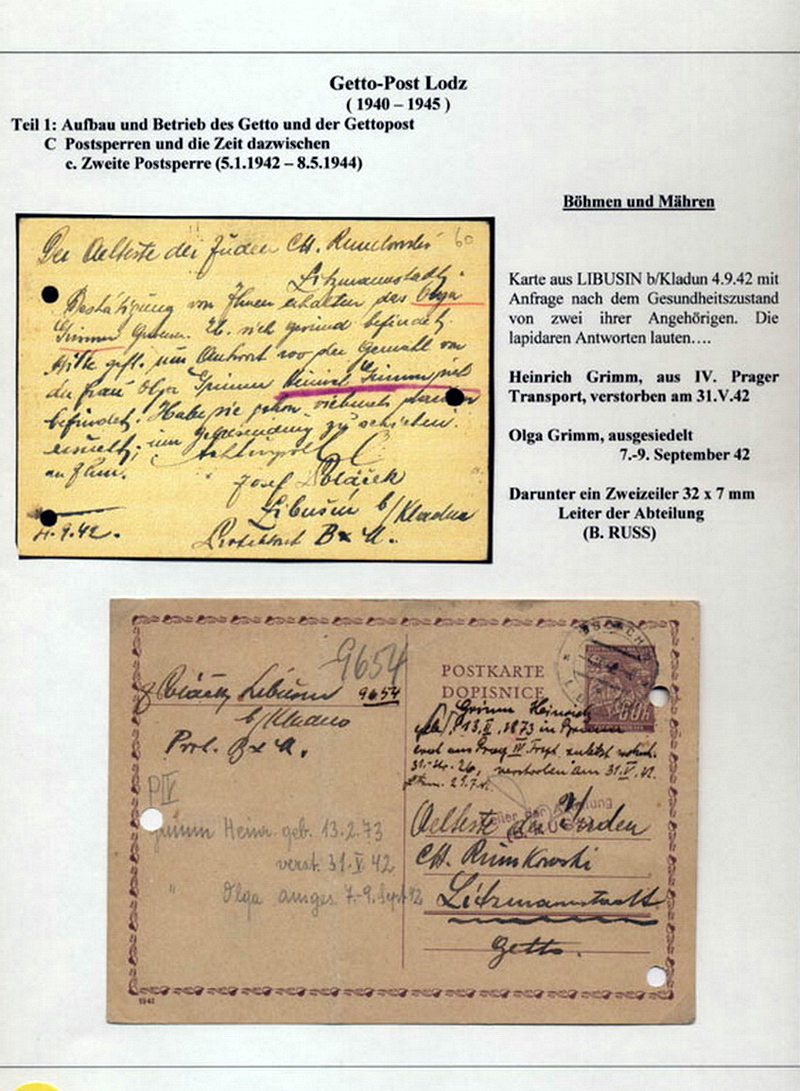 Getto-Post Lodz
( 1940 – 1945 )
Teil 1: Aufbau und Betrieb des Getto und der Gettopost
C Postsperren und die Zeit dazwischen
c. Zweite Postsperre (5.1.1942 – 8.5.1944)
Böhmen und Mähren
Karte aus LIBUSIN b/Kladun 4.9.42 mit
Anfrage nach dem Gesundheitszustand
von zwei ihrer Angehörigen. Die
lapidaren Antworten lauten….
Heinrich Grimm, aus IV. Prager
Transport, verstorben am 31.V.42
Olga Grimm, ausgesiedelt
7.-9. September 42
Darunter ein Zweizeiler 32 x 7 mm
Leiter der Abteilung
(B. RUSS)
Der Aelteste der Juden Ch. Rumkowski 60
Litzmannstadt
Bestätigung von Ihnen erhalten das Olga
Grimm sich gesund befindet
Bitte um Antwort wo der Gemahl von
der Frau Olga Grimm Grimm
befindet. Habe sie schon
ersucht, um zu schicken.
Josef Poláček
Libušin b/Kladna
4.9.42. Protektorat B x M.
9654
J Poláček, Libušin 9654
b/Kladno
Prot. B x M.
POSTKARTE
DOPISNICE
60h
Grimm Heinrich
geb. 13.II.1873 in
aus Prag IV
verstorben am 31.V.42.
P IV
Grimm Heinr. geb. 13.2.73
verst. 31.V.42
" Olga ausges. 7.-9. Sept 42
Leiter der Abteilung
Aelteste der Juden
Ch. Rumkowski
Litzmannstadt
Getto.